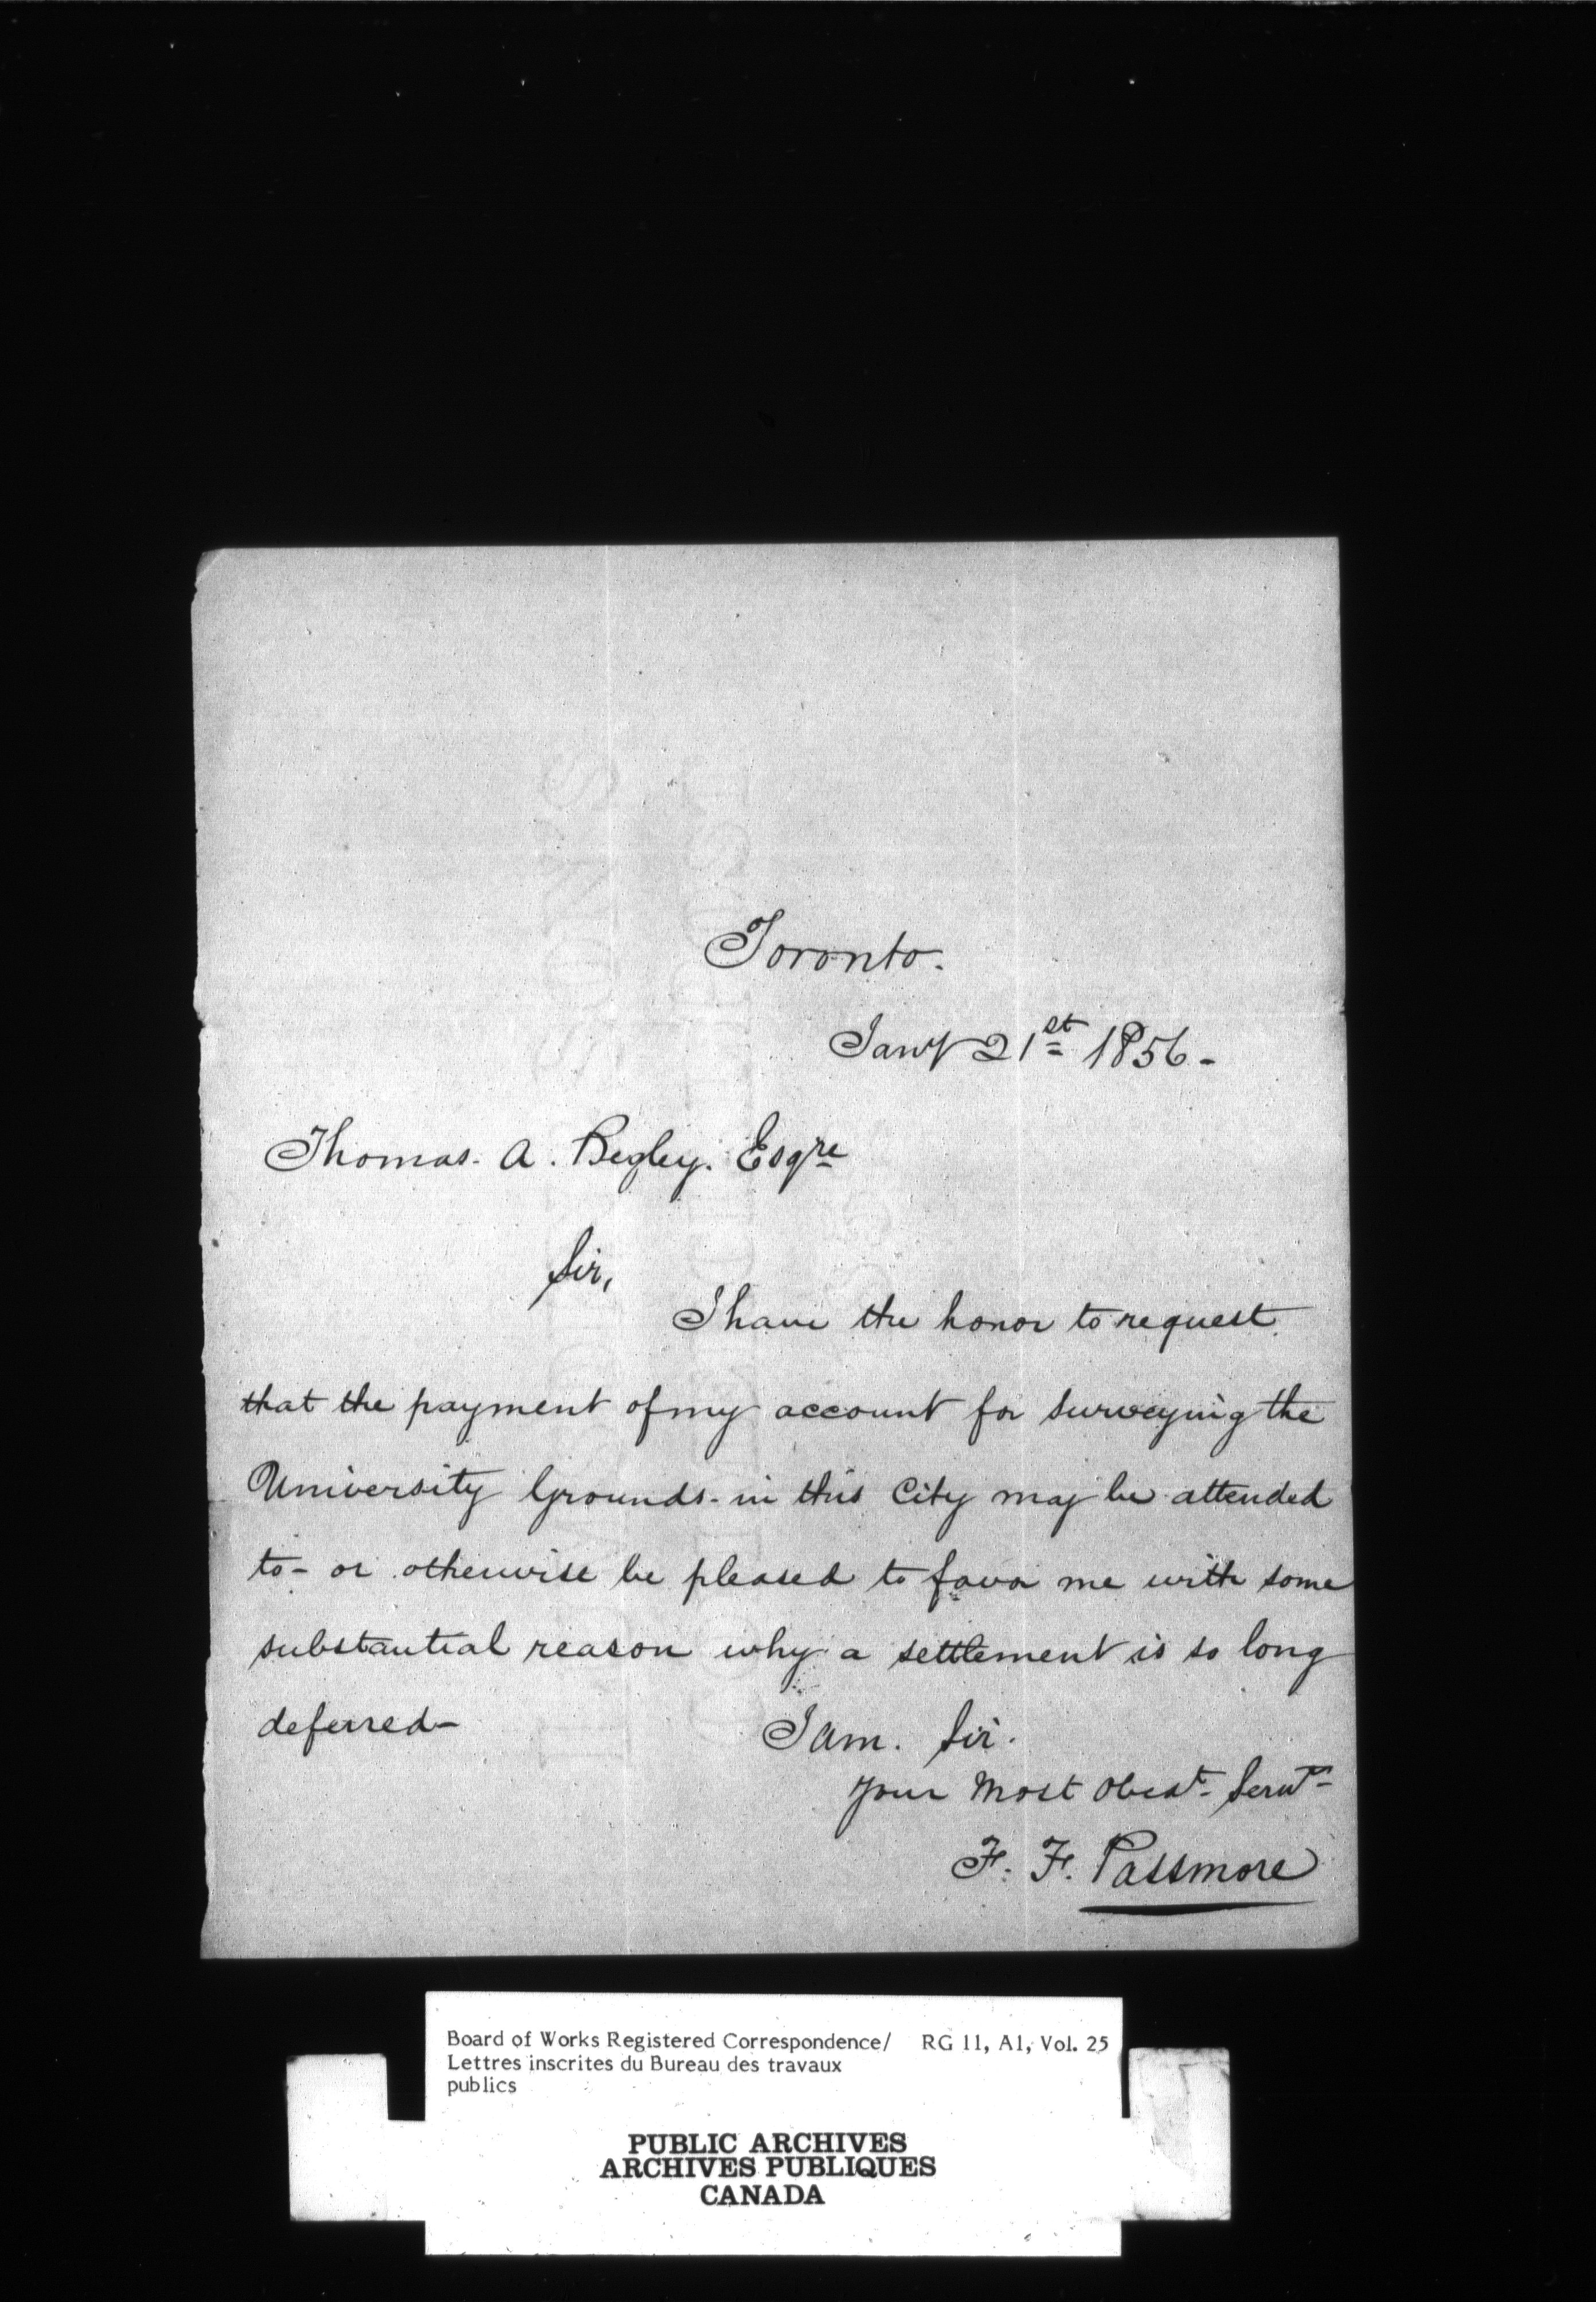 Toronto.
Jany 21st 1856-
Thomas. A. Begley. Esqre
Sir,
I have the honor to request
that the payment of my account for surveying the
University Grounds - in this City may be attended
to - or otherwise be pleased to favor me with some
substantial reason why a settlement is so long
deferred-
I am. Sir.
Your Most Obedt Servt
F. F. Passmore
Board of Works Registered Correspondence/ RG 11, A1, Vol. 25
Lettres inscrites du Bureau des travaux
publics
PUBLIC ARCHIVES
ARCHIVES PUBLIQUES
CANADA